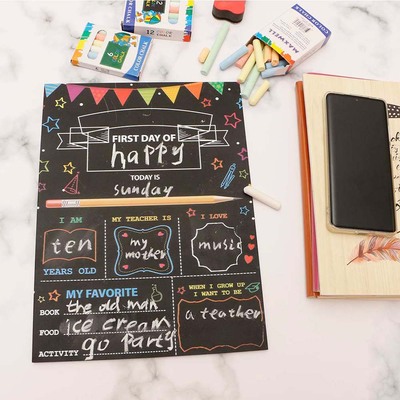 COLOR CHALK
MAXWELL
FIRST DAY OF
happy
TODAY IS
sunday
I AM
ten
YEARS OLD
MY TEACHER IS
my
mother
I LOVE
music
MY FAVORITE
BOOK the old man
FOOD ice cream
ACTIVITY go Party
WHEN I GROW UP
I WANT TO BE
a teather